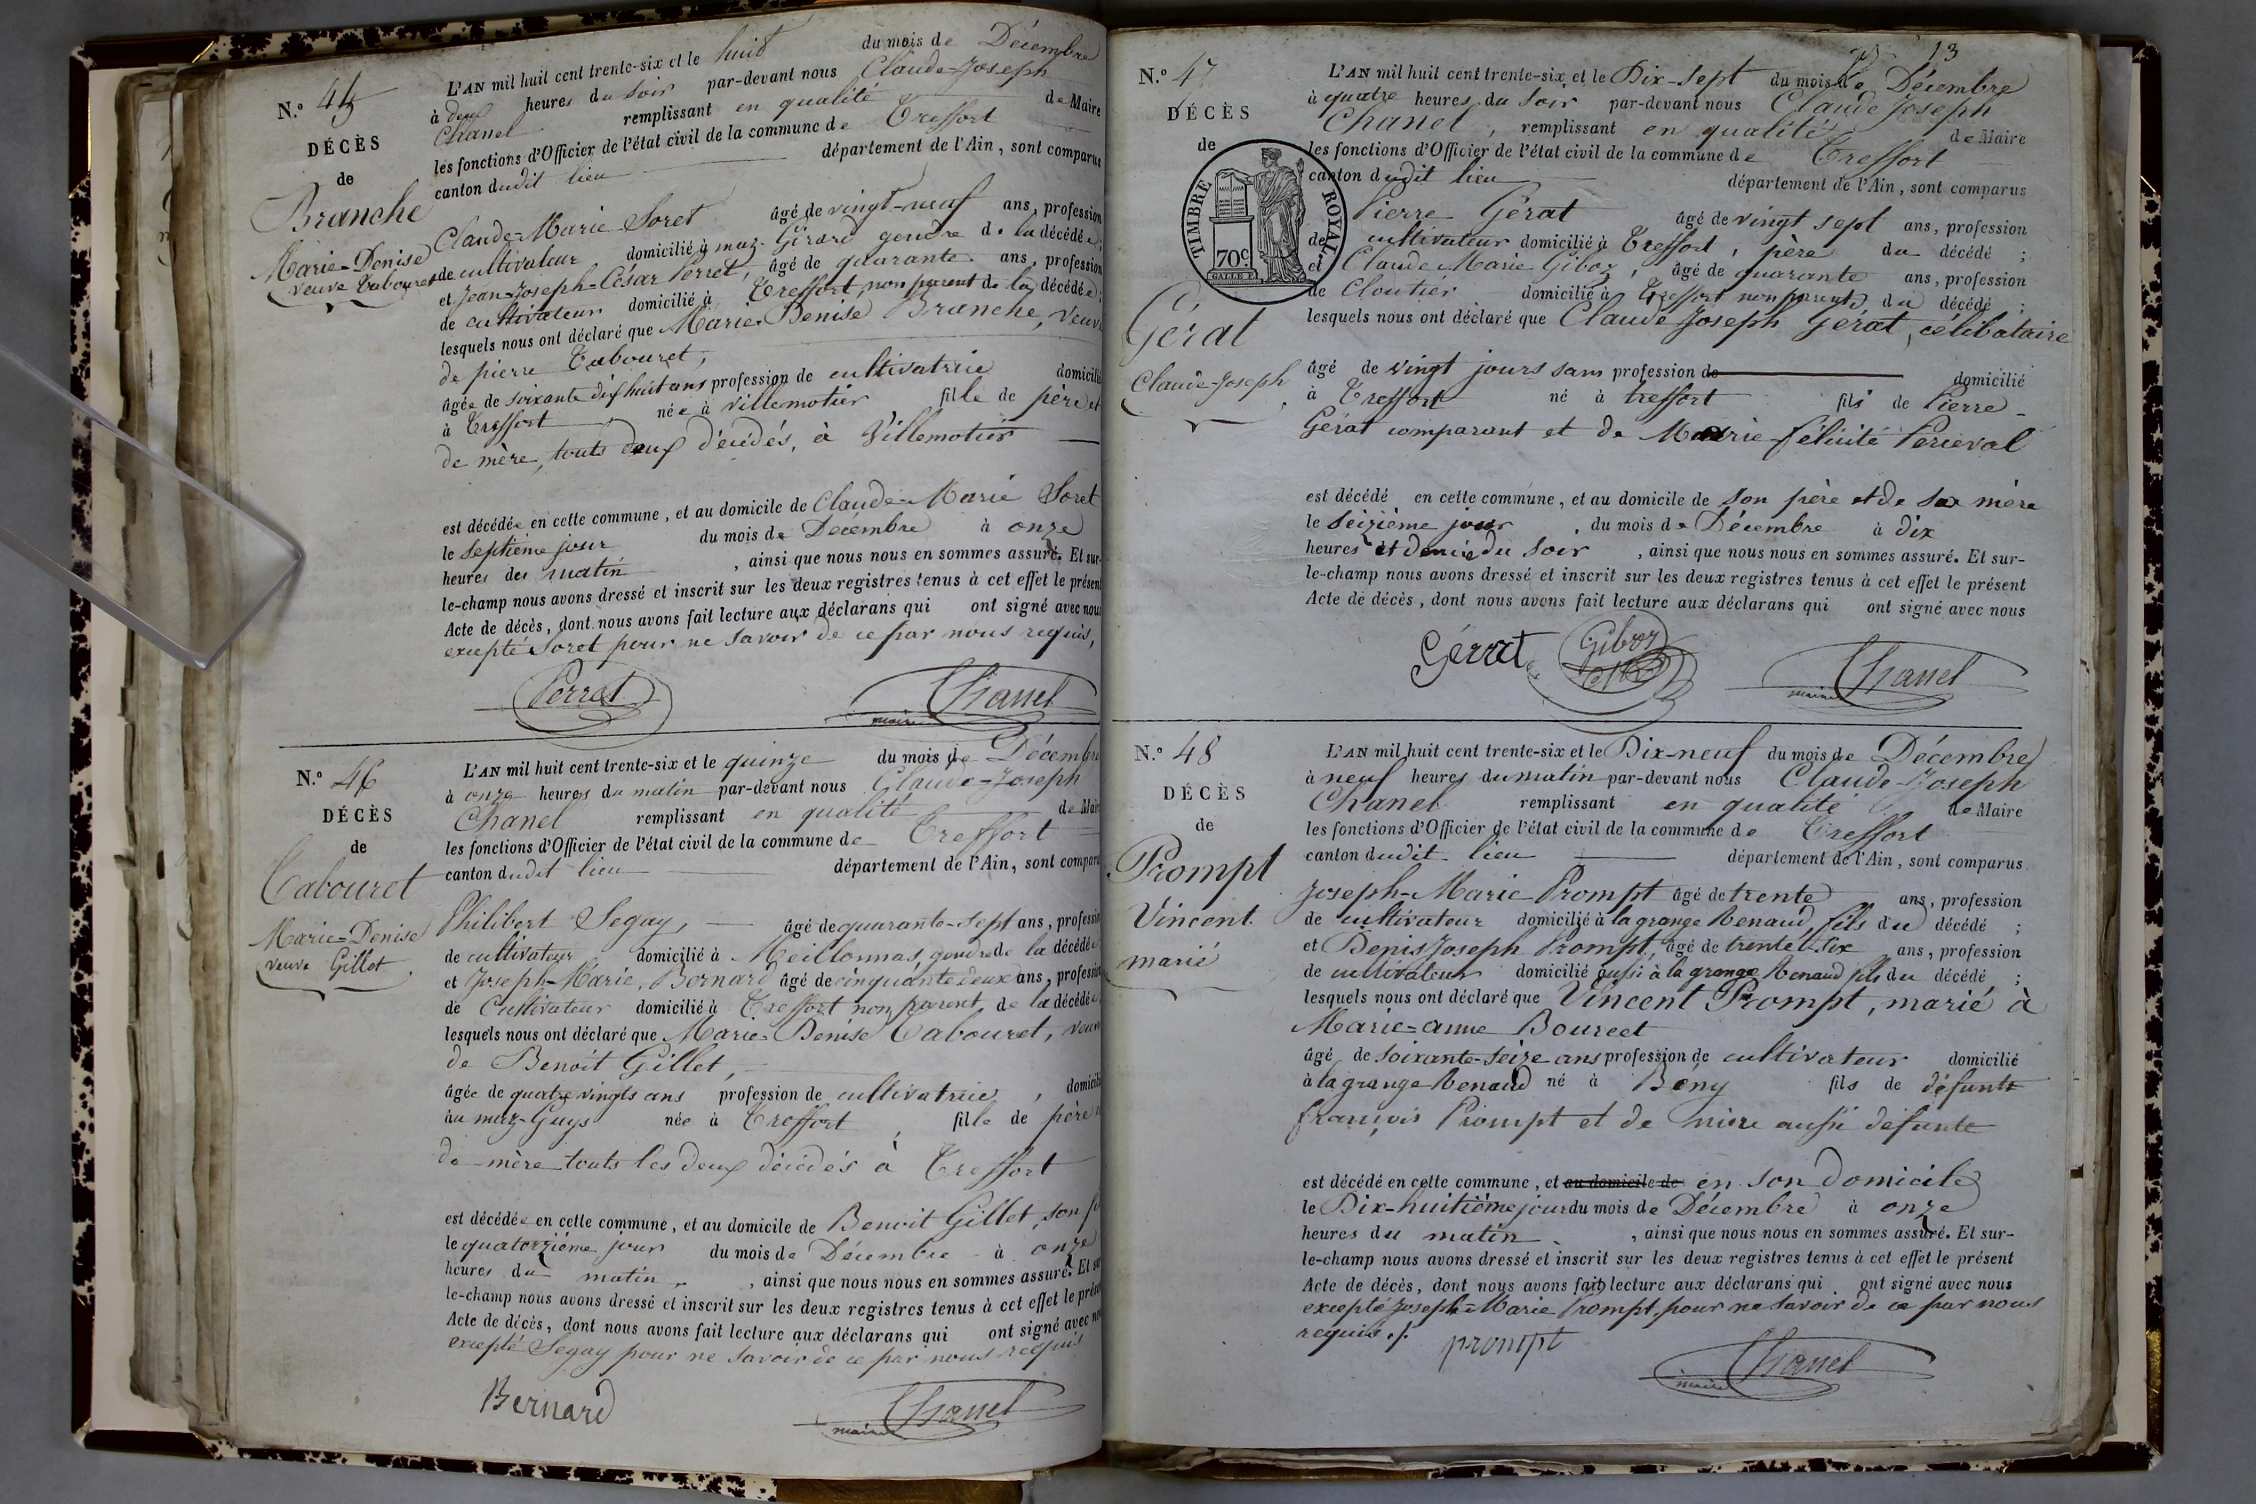 N.° 45
DÉCÈS
de
Branche
Marie-Denise
veuve Tabouret
L'AN mil huit cent trente-six et le huit du mois de Décembre
à deux heures du soir par-devant nous Claude-Joseph
Chanel remplissant en qualité de Maire
les fonctions d'Officier de l'état civil de la commune de Treffort
canton dudit lieu département de l'Ain, sont comparus
Claude-Marie Soret âgé de vingt-neuf ans, profession
de cultivateur domicilié à maz-Girard gendre de la décédée;
et Jean-Joseph-César Perret, âgé de quarante ans, profession
de cultivateur domicilié à Treffort, non parent de la décédée;
lesquels nous ont déclaré que Marie-Denise Branche, veuve
de pierre Tabouret,
âgée de soixante dix huit ans profession de cultivatrice domicilié
à Treffort née à villemotier fille de père et
de mère, touts deux décédés, à Villemotier
est décédée en cette commune, et au domicile de Claude-Marie Soret
le septième jour du mois de Décembre à onze
heures du matin, ainsi que nous nous en sommes assuré. Et sur-
le-champ nous avons dressé et inscrit sur les deux registres tenus à cet effet le présent
Acte de décès, dont nous avons fait lecture aux déclarans qui ont signé avec nous
excepté Soret pour ne savoir de ce par nous requis,
Perret Chanel
maire
N.° 46
DÉCÈS
de
Tabouret
Marie-Denise
veuve Gillet
L'AN mil huit cent trente-six et le quinze du mois de Décembre
à onze heures du matin par-devant nous Claude-Joseph
Chanel remplissant en qualité de Mair
les fonctions d'Officier de l'état civil de la commune de Treffort
canton dudit lieu département de l'Ain, sont comparu
Philibert Segay, âgé de quarante-sept ans, professio
de cultivateur domicilié à Meillonnas, gendre de la décédée
et Joseph-Marie, Bernard âgé de cinquante deux ans, profession
de Cultivateur domicilié à Treffort non parent de la décédée
lesquels nous ont déclaré que Marie-Denise Tabouret, veuve
de Benoit Gillet,
âgée de quatre vingts ans profession de cultivatrice, domicili
au maz-Guys née à Treffort, fille de père
de mère touts les deux décédés à Treffort
est décédée en cette commune, et au domicile de Benoit Gillet, son
le quatorzième jour du mois de Décembre à onze
heures du matin, ainsi que nous nous en sommes assuré. Et sur
le-champ nous avons dressé et inscrit sur les deux registres tenus à cet effet le présen
Acte de décès, dont nous avons fait lecture aux déclarans qui ont signé avec no
excepté Segay pour ne savoir de ce par nous requis
Bernard Chanel
maire
13
N.° 47
DÉCÈS
de
TIMBRE ROYAL.
70c
Gérat
Claude-Joseph
L'AN mil huit cent trente-six et le Dix-sept du mois de Décembre
à quatre heures du soir par-devant nous Claude Joseph
Chanel, remplissant en qualité de Maire
les fonctions d'Officier de l'état civil de la commune de Treffort
canton dudit lieu département de l'Ain, sont comparus
Pierre Gérat âgé de vingt sept ans, profession
de cultivateur domicilié à Treffort, père du décédé;
et Claude Marie Giboz, âgé de quarante ans, profession
de Cloutier domicilié à Treffort non parent du décédé;
lesquels nous ont déclaré que Claude Joseph Gérat, célibataire
âgé de vingt jours sans profession de domicilié
à Treffort né à treffort fils de Pierre
Gérat comparant et de Marie félicité Perceval
est décédé en cette commune, et au domicile de son père et de sa mère
le seizième jour, du mois de Décembre à dix
heures et demie du soir, ainsi que nous nous en sommes assuré. Et sur-
le-champ nous avons dressé et inscrit sur les deux registres tenus à cet effet le présent
Acte de décès, dont nous avons fait lecture aux déclarans qui ont signé avec nous
Gérrat Giboz Chanel
maire
N.° 48
DÉCÈS
de
Prompt
Vincent
marié
L'AN mil huit cent trente-six et le Dix-neuf du mois de Décembre
à neuf heures du matin par-devant nous Claude-Joseph
Chanel remplissant en qualité de Maire
les fonctions d'Officier de l'état civil de la commune de Treffort
canton dudit lieu département de l'Ain, sont comparus
Joseph-Marie Prompt âgé de trente ans, profession
de cultivateur domicilié à la grange Renaud, fils du décédé;
et Denis Joseph Prompt, âgé de trente six ans, profession
de cultivateur domicilié aussi à la grange Renaud fils du décédé;
lesquels nous ont déclaré que Vincent Prompt, marié à
Marie-anne Bourcet
âgé de soixante-seize ans profession de cultivateur domicilié
à la grange Renaud né à Bény fils de défunt
françois Prompt et de mère aussi défunte
est décédé en cette commune, et au domicile de en son domicile
le Dix-huitième jour du mois de Décembre à onze
heures du matin, ainsi que nous nous en sommes assuré. Et sur-
le-champ nous avons dressé et inscrit sur les deux registres tenus à cet effet le présent
Acte de décès, dont nous avons fait lecture aux déclarans qui ont signé avec nous
excepté Joseph-Marie Prompt pour ne savoir de ce par nous
requis ./.
prompt Chanel
maire